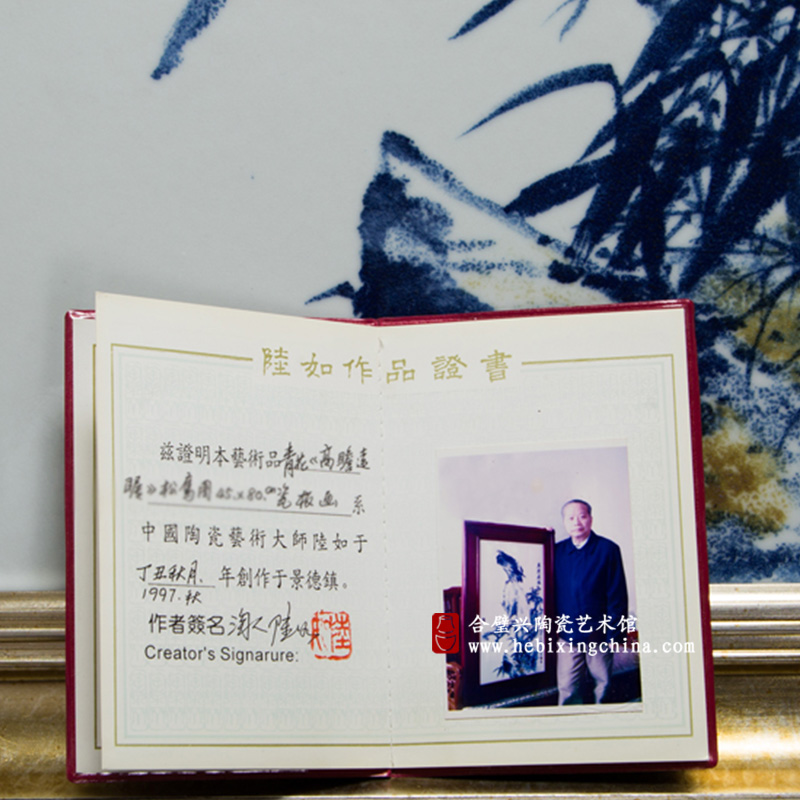 陸如作品證書
兹證明本藝術品青花《高瞻遠
瞻》松鷹圖45×80㎝瓷板画 系
中國陶瓷藝術大師陸如于
丁丑秋月. 年創作于景德鎮。
1997.秋
作者簽名 陸如
Creator's Signarure:
合璧兴陶瓷艺术馆
www.hebixingchina.com